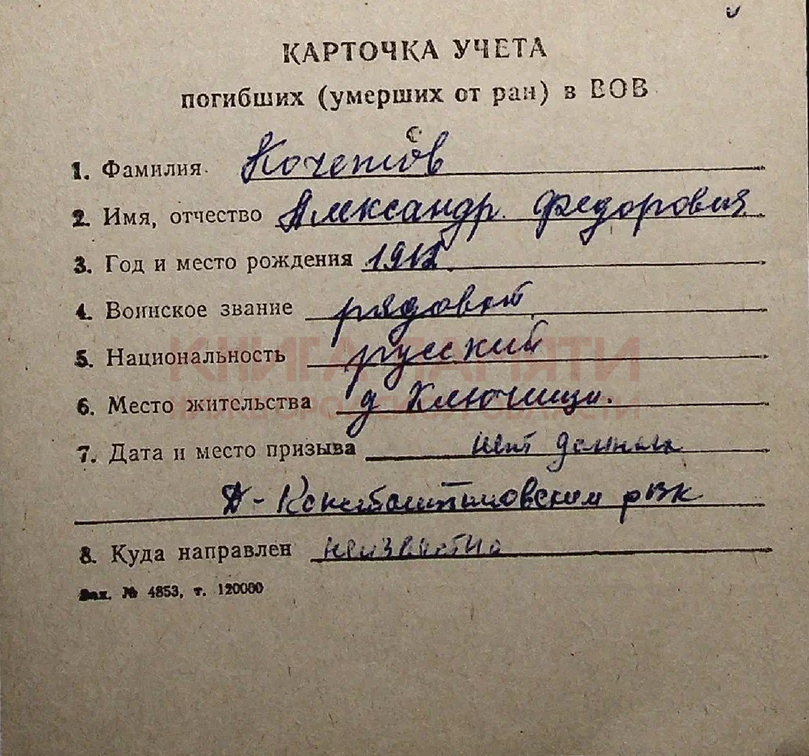 КАРТОЧКА УЧЕТА
погибших (умерших от ран) в ВОВ
1. Фамилия Кочетов
2. Имя, отчество Александр Федорович
3. Год и место рождения
4. Воинское звание рядовой
5. Национальность русский
КНИГА ПАМЯТИ
6. Место жительства д Ключищи.
7. Дата и место призыва нет данных
Д-Константиновским рвк
8. Куда направлен неизвестно
Зак. № 4853, т. 120000